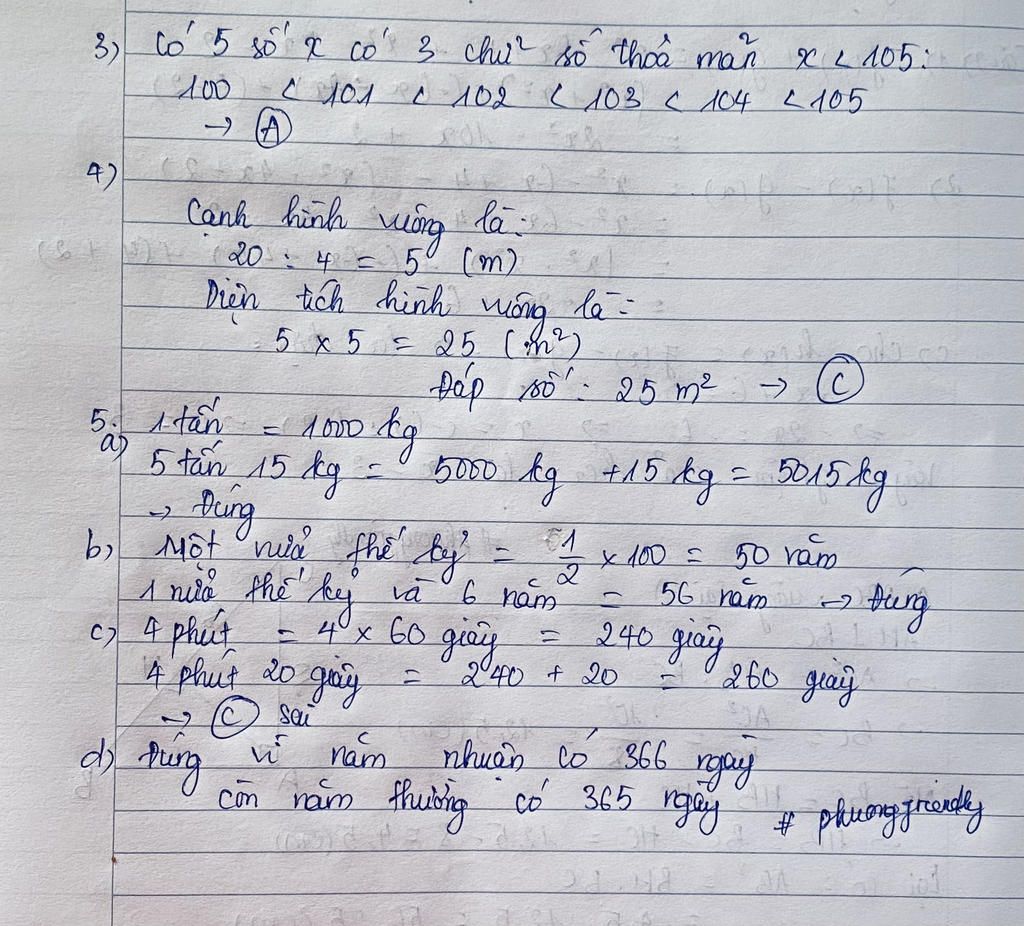 3) Có 5 số x có 3 chữ số thoả mãn x < 105:
100 < 101 < 102 < 103 < 104 < 105
→ A
4)
Cạnh hình vuông là:
20 : 4 = 5 (m)
Diện tích hình vuông là:
5 x 5 = 25 (m²)
Đáp số: 25 m² → C
5. a) 1 tấn = 1000 kg
5 tấn 15 kg = 5000 kg + 15 kg = 5015 kg
→ Đúng
b) Một nửa thế kỷ = 1/2 x 100 = 50 năm
1 nửa thế kỷ và 6 năm = 56 năm → Đúng
c) 4 phút = 4 x 60 giây = 240 giây
4 phút 20 giây = 240 + 20 = 260 giây
→ C sai
d) Đúng vì năm nhuận có 366 ngày
còn năm thường có 365 ngày # phuongfriendly